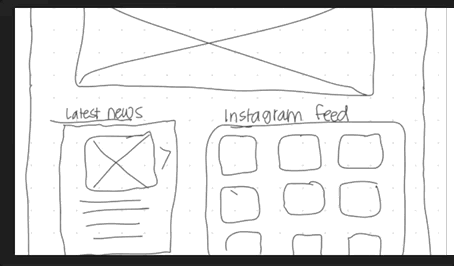 Latest news
Instagram feed